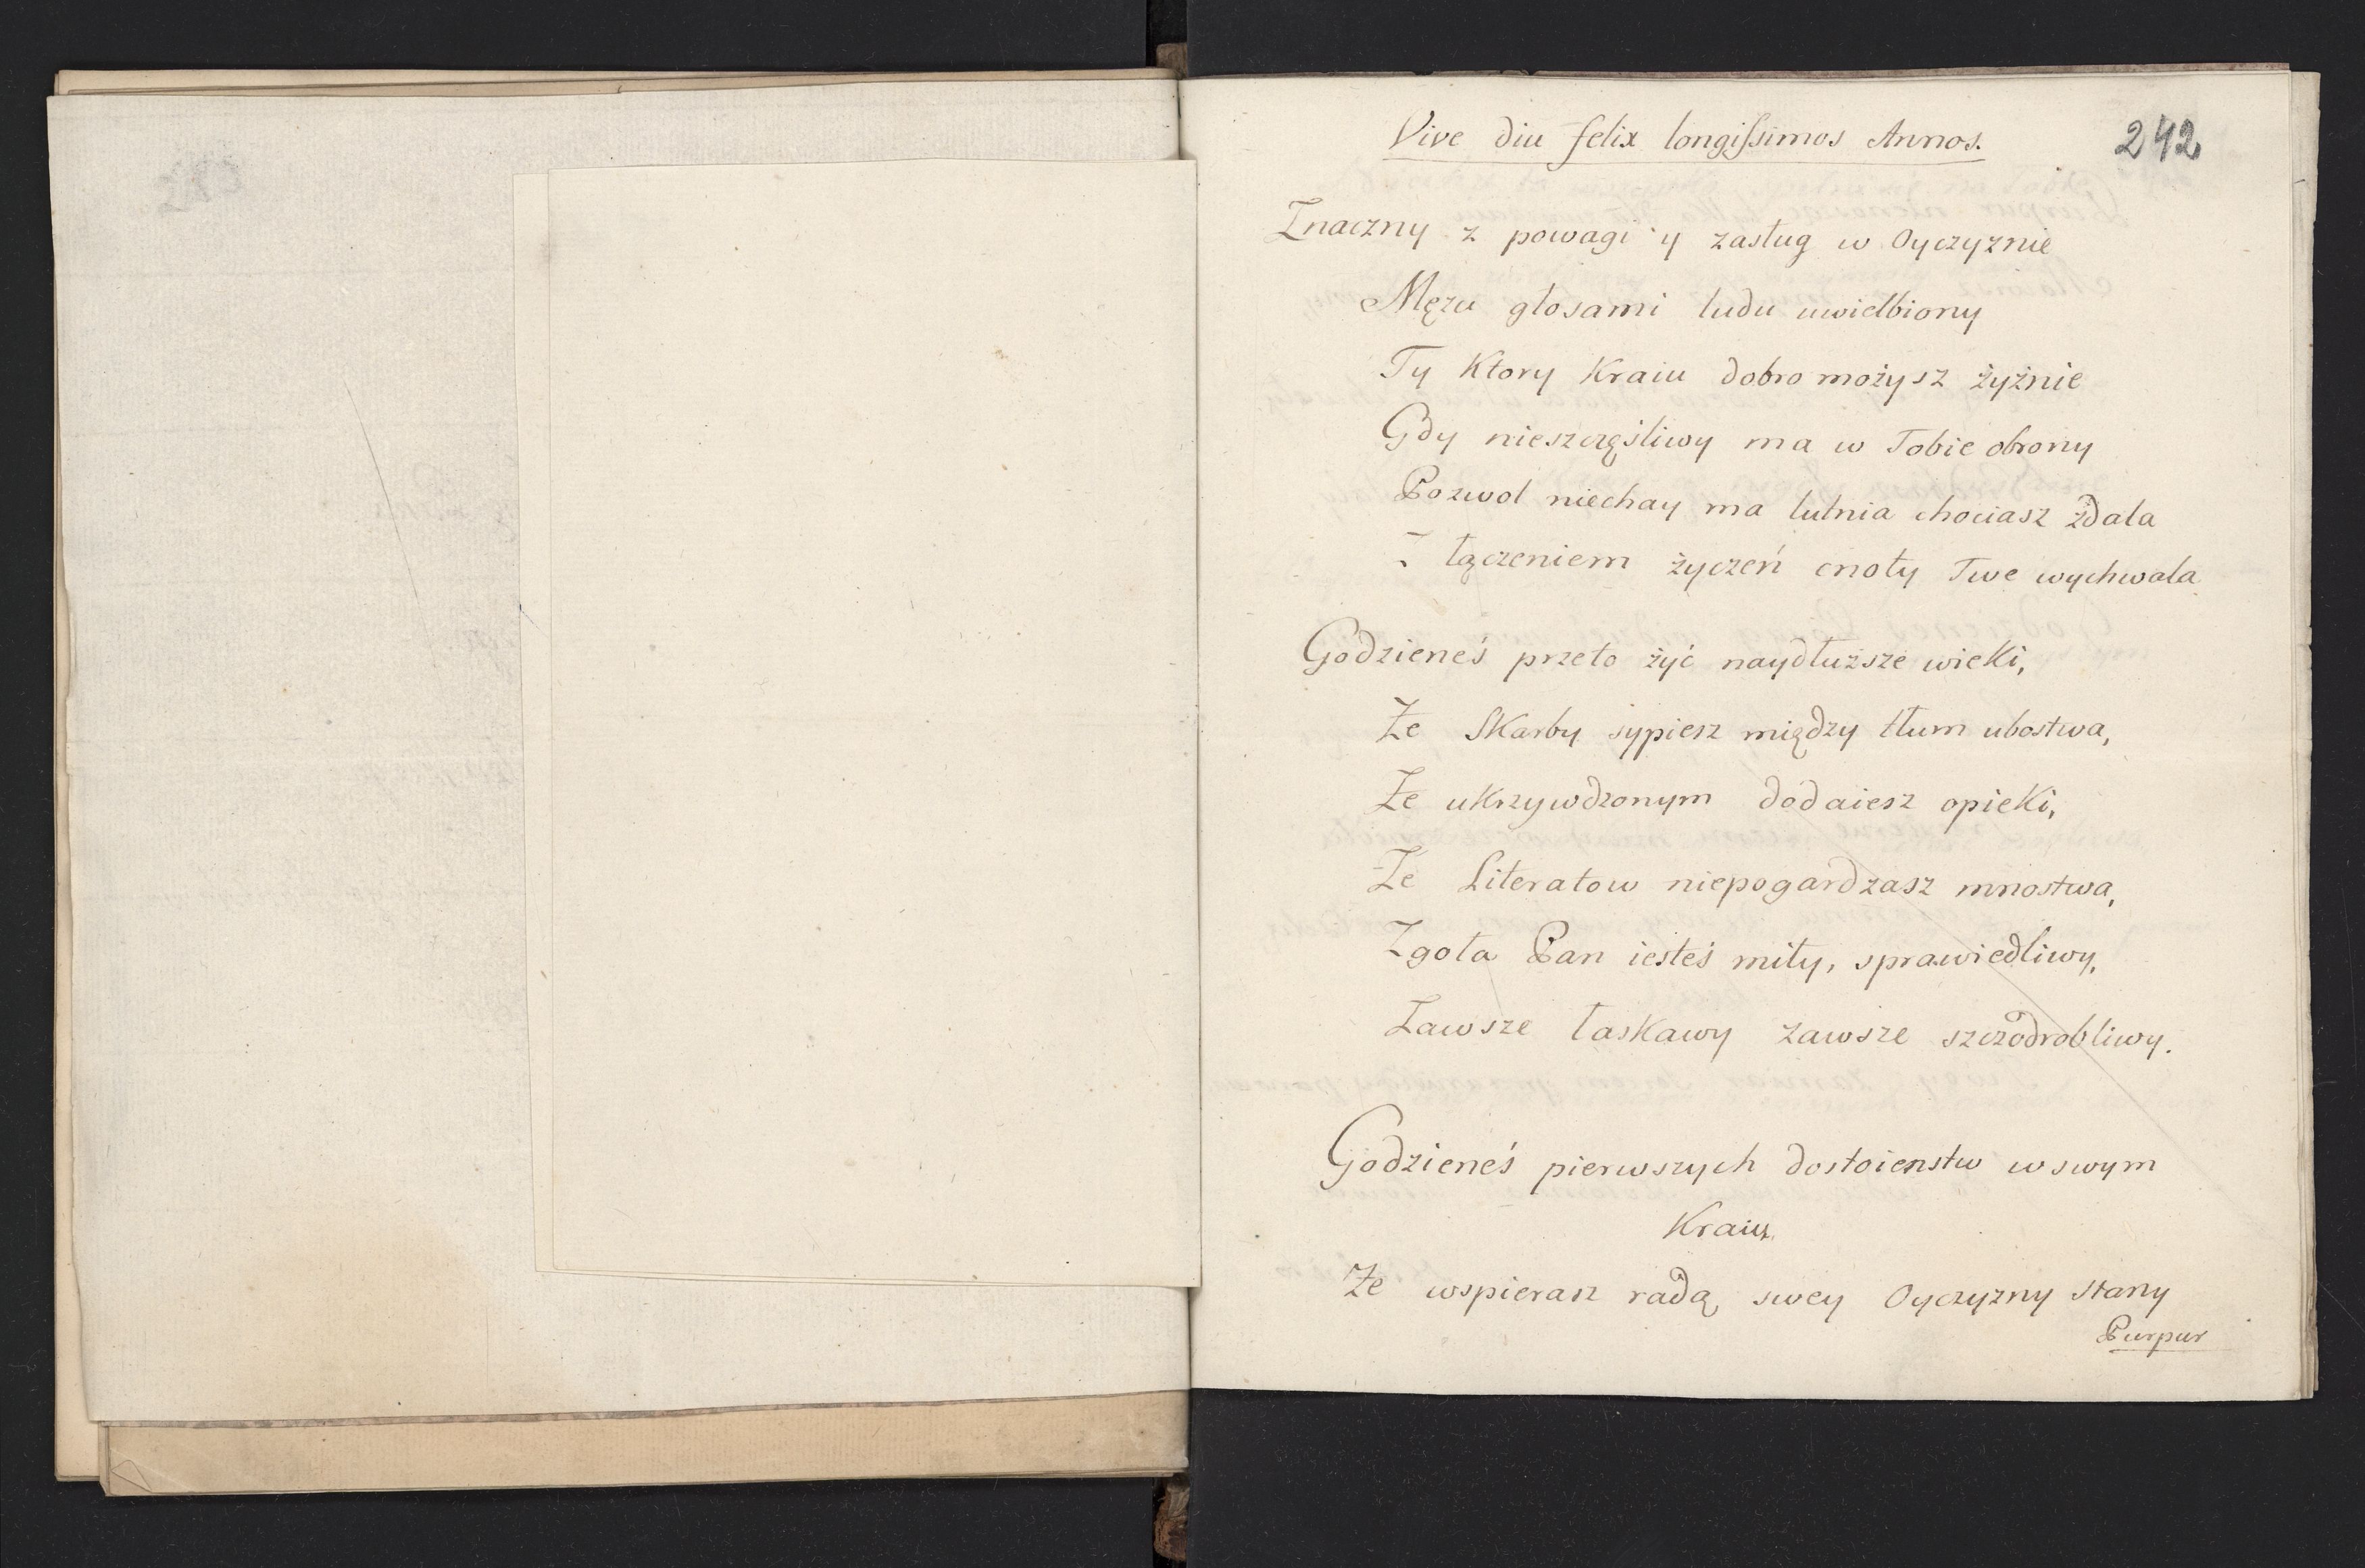 Vive diu felix longiſsimos Annos.
242
Znaczny z powagi y zasług w Oyczyznie
Mężu głosami ludu uwielbiony
Ty Ktory Kraiu dobro możysz żyżnie
Gdy nieszczęśliwy ma w Tobie obrony
Pozwol niechay ma lutnia chociasz zdala
Z łączeniem życzeń cnoty Twe wychwala
Godzieneś przeto żyć naydłuższe wieKi,
Że SKarby sypiesz między tłum ubostwa,
Że uKrzywdzonym dodaiesz opieKi,
Że Literatow niepogardzasz mnostwa,
Zgoła Pan iesteś miły, sprawiedliwy,
Zawsze łasKawy zawsze szczodrobliwy.
Godzieneś pierwszych dostoienstw w swym
Kraiu,
Że wspierasz radą swey Oyczyzny stany
Purpur